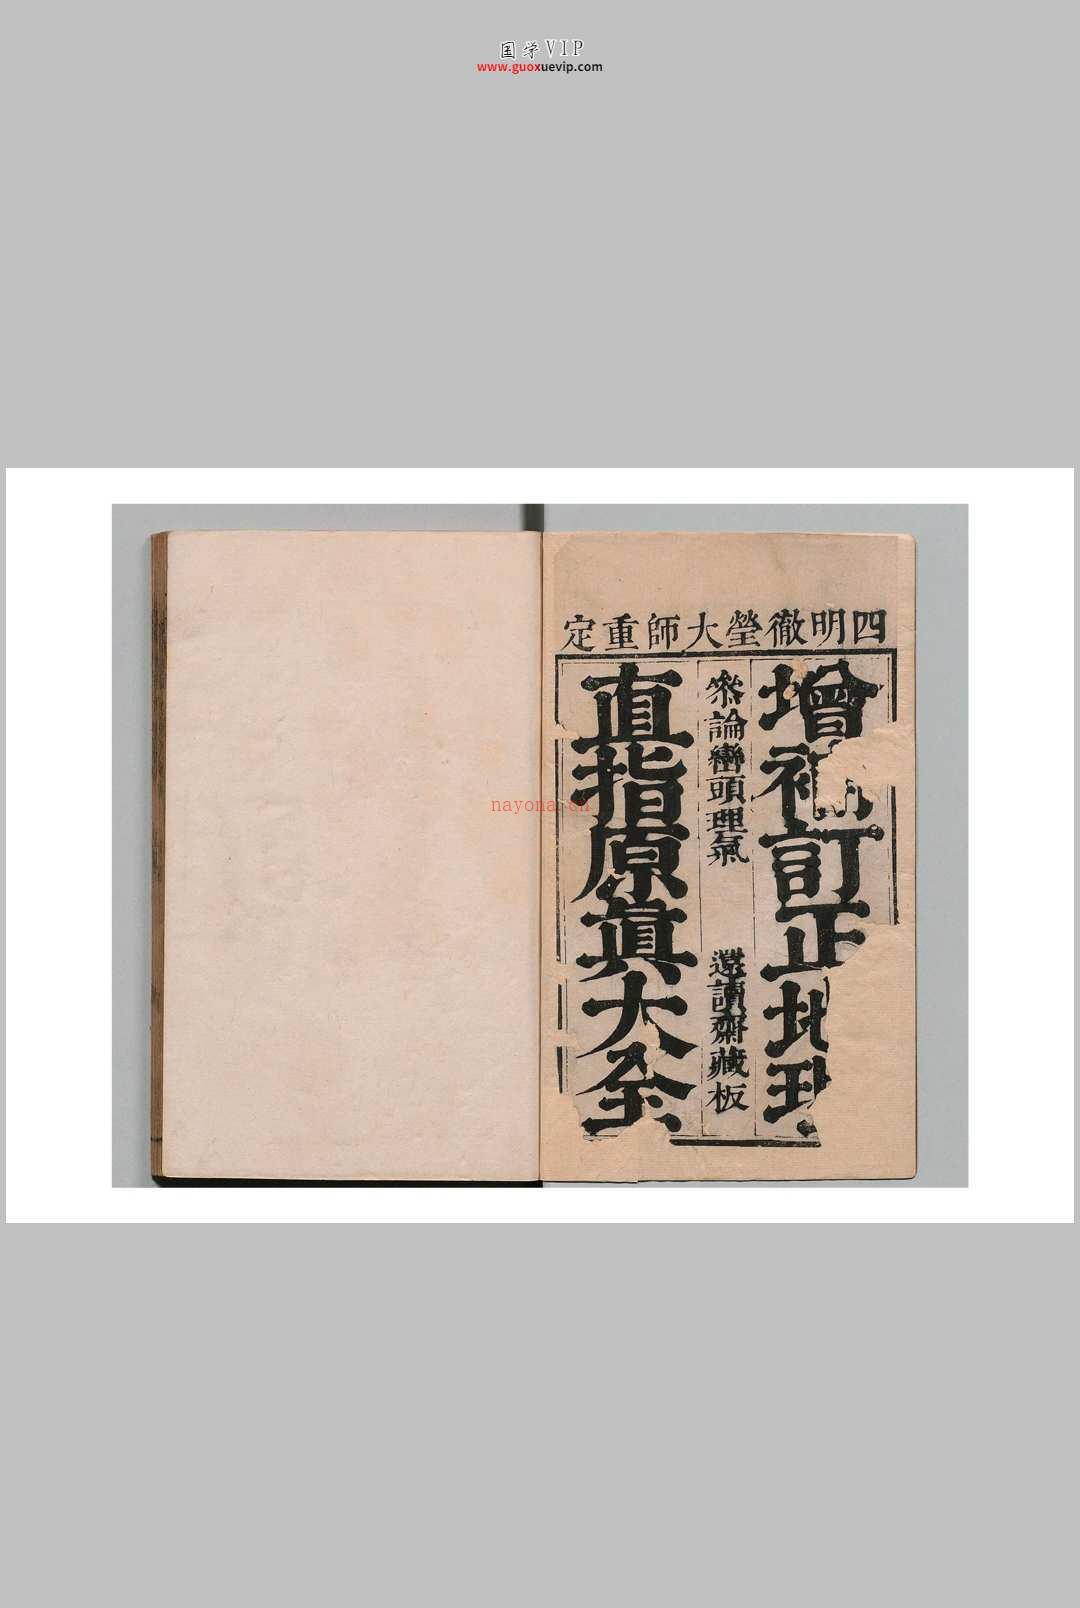 国学VIP
www.guoxuevip.com
四明徹瑩大師重定
增補訂正地理
叅論巒頭理氣
還讀齋藏板
直指原眞大全
nayona.cn